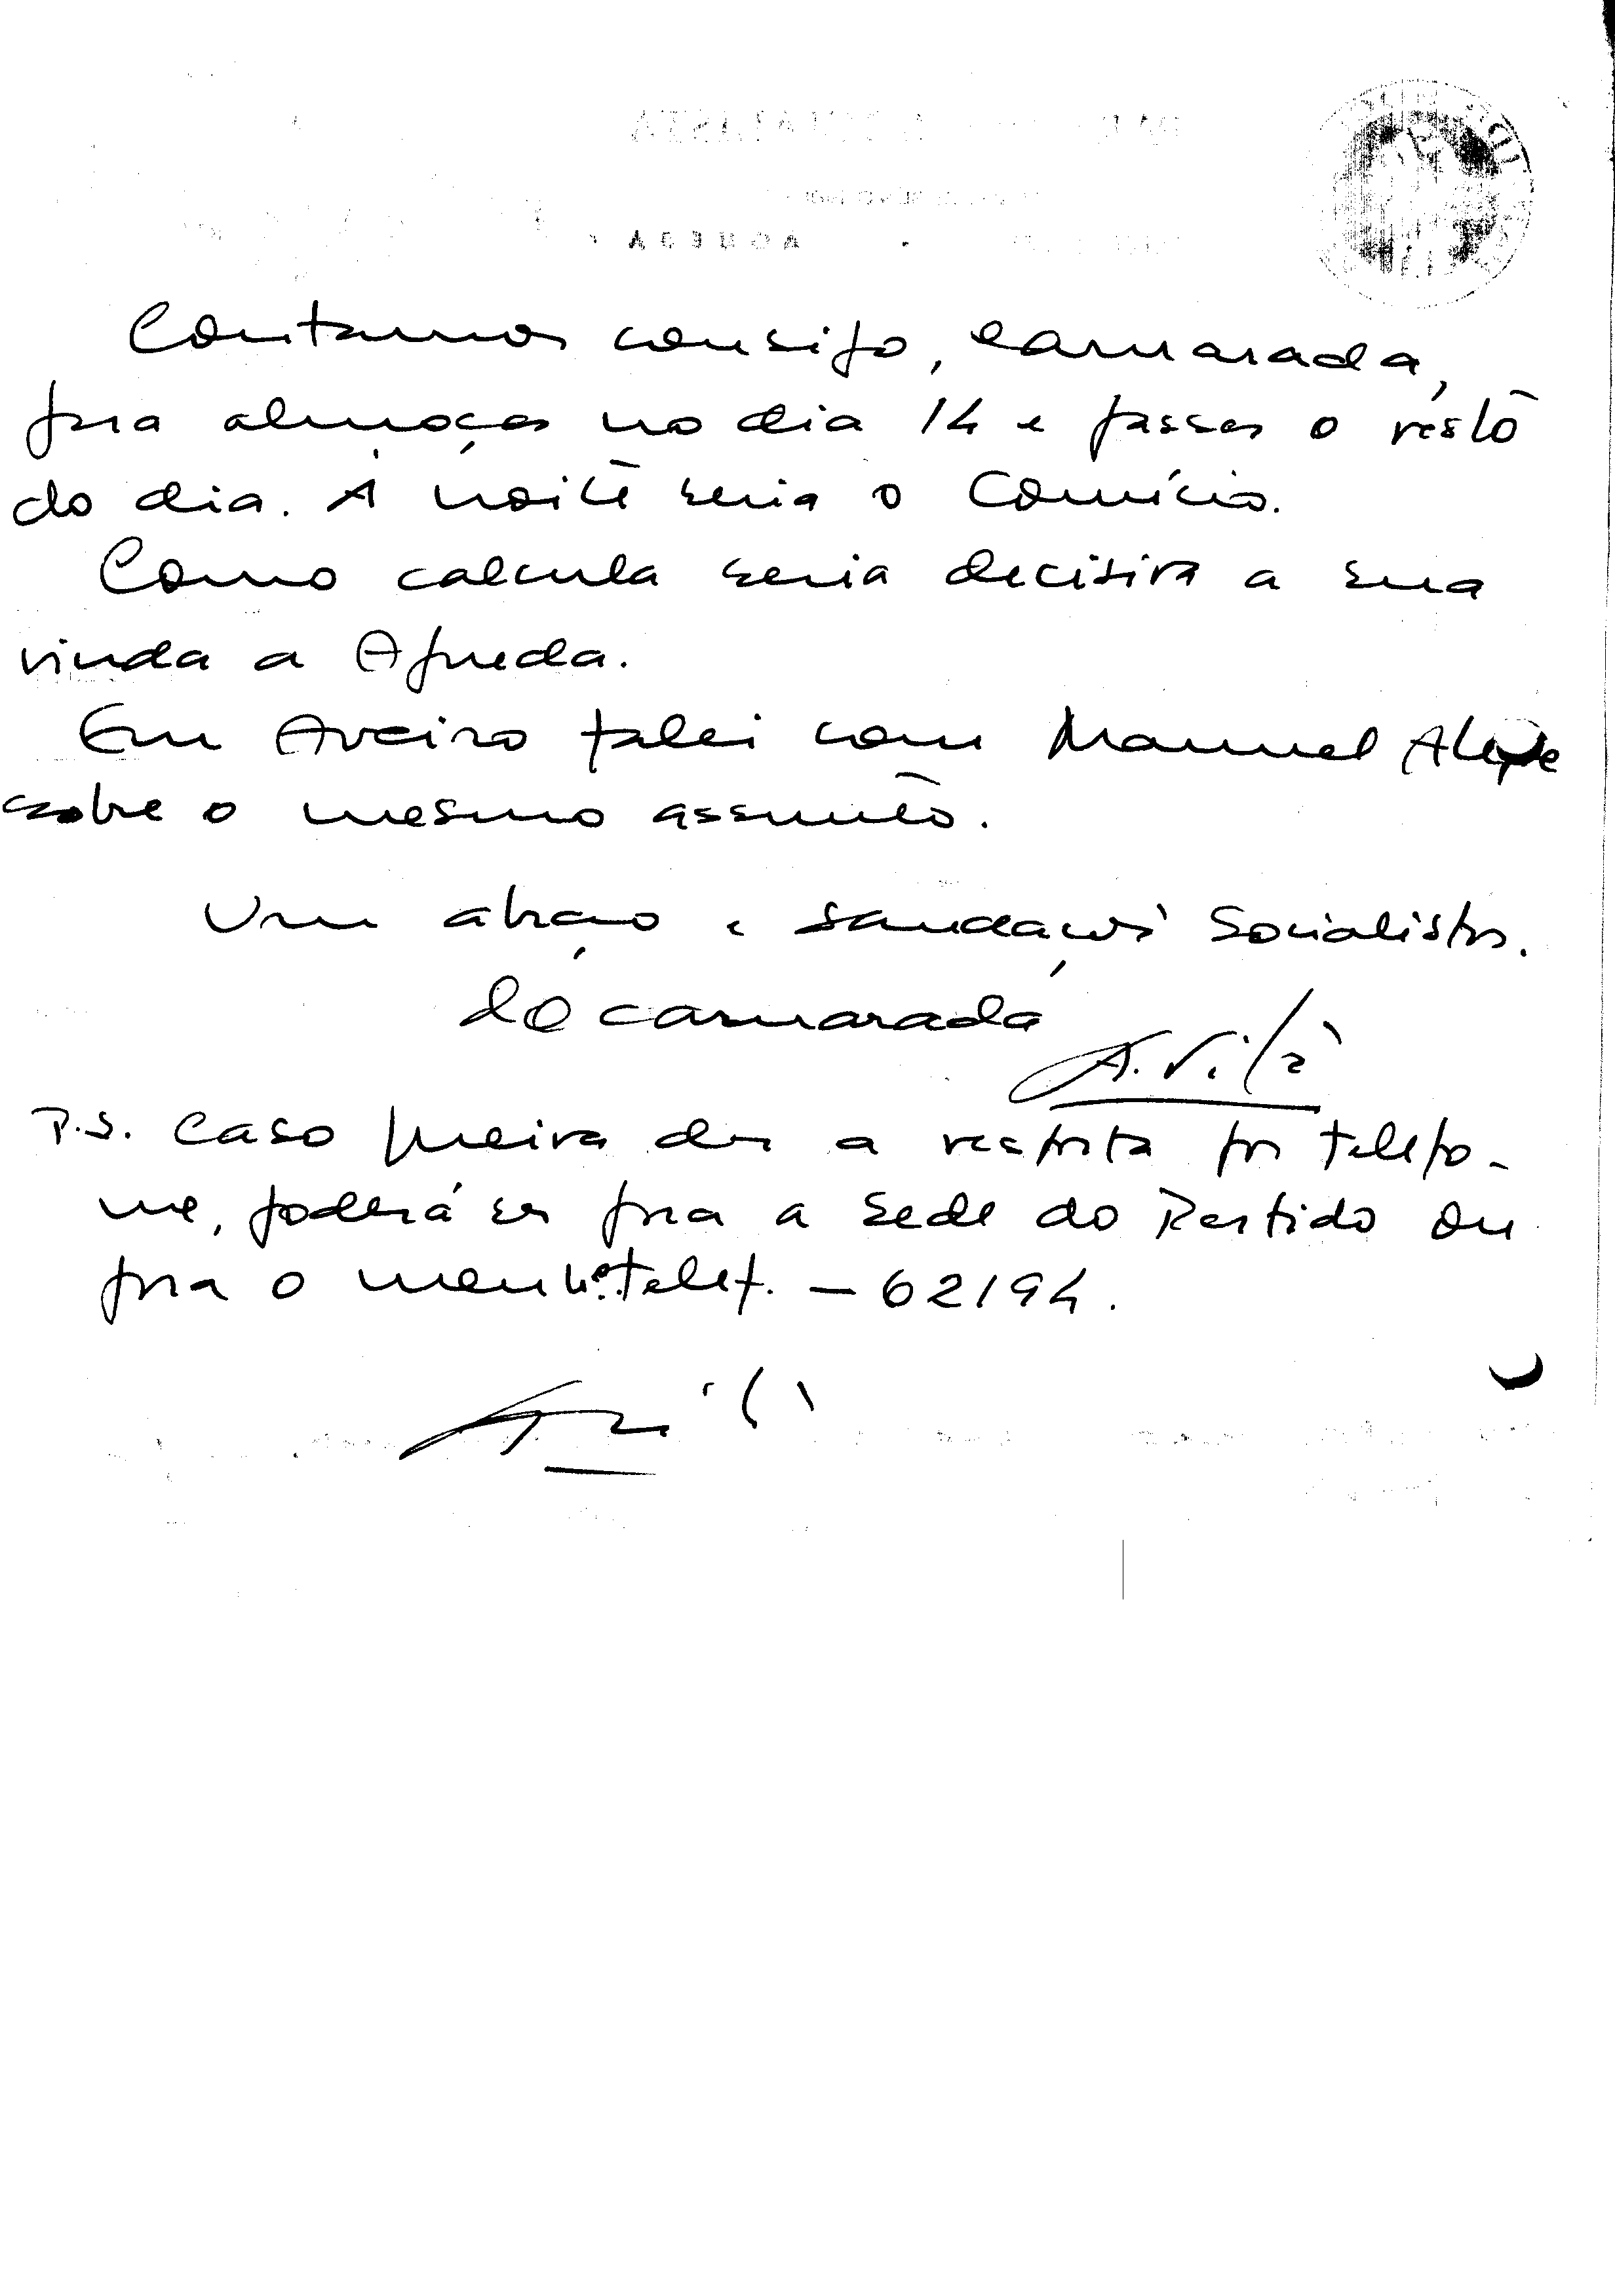 Contamos consigo, camarada,
para almoçar no dia 14 e passar o resto
do dia. À noite seria o Comício.
Como calcula seria decisiva a sua
vinda a Agueda.
Em Aveiro falei com Manuel Alegre
sobre o mesmo assunto.
Um abraço e saudações Socialistas.
do camarada
A. Vilà
P.S. Caso queira dar a resposta por telefo-
ne, poderá ser para a sede do Partido ou
para o meu nº. telef. – 62194.